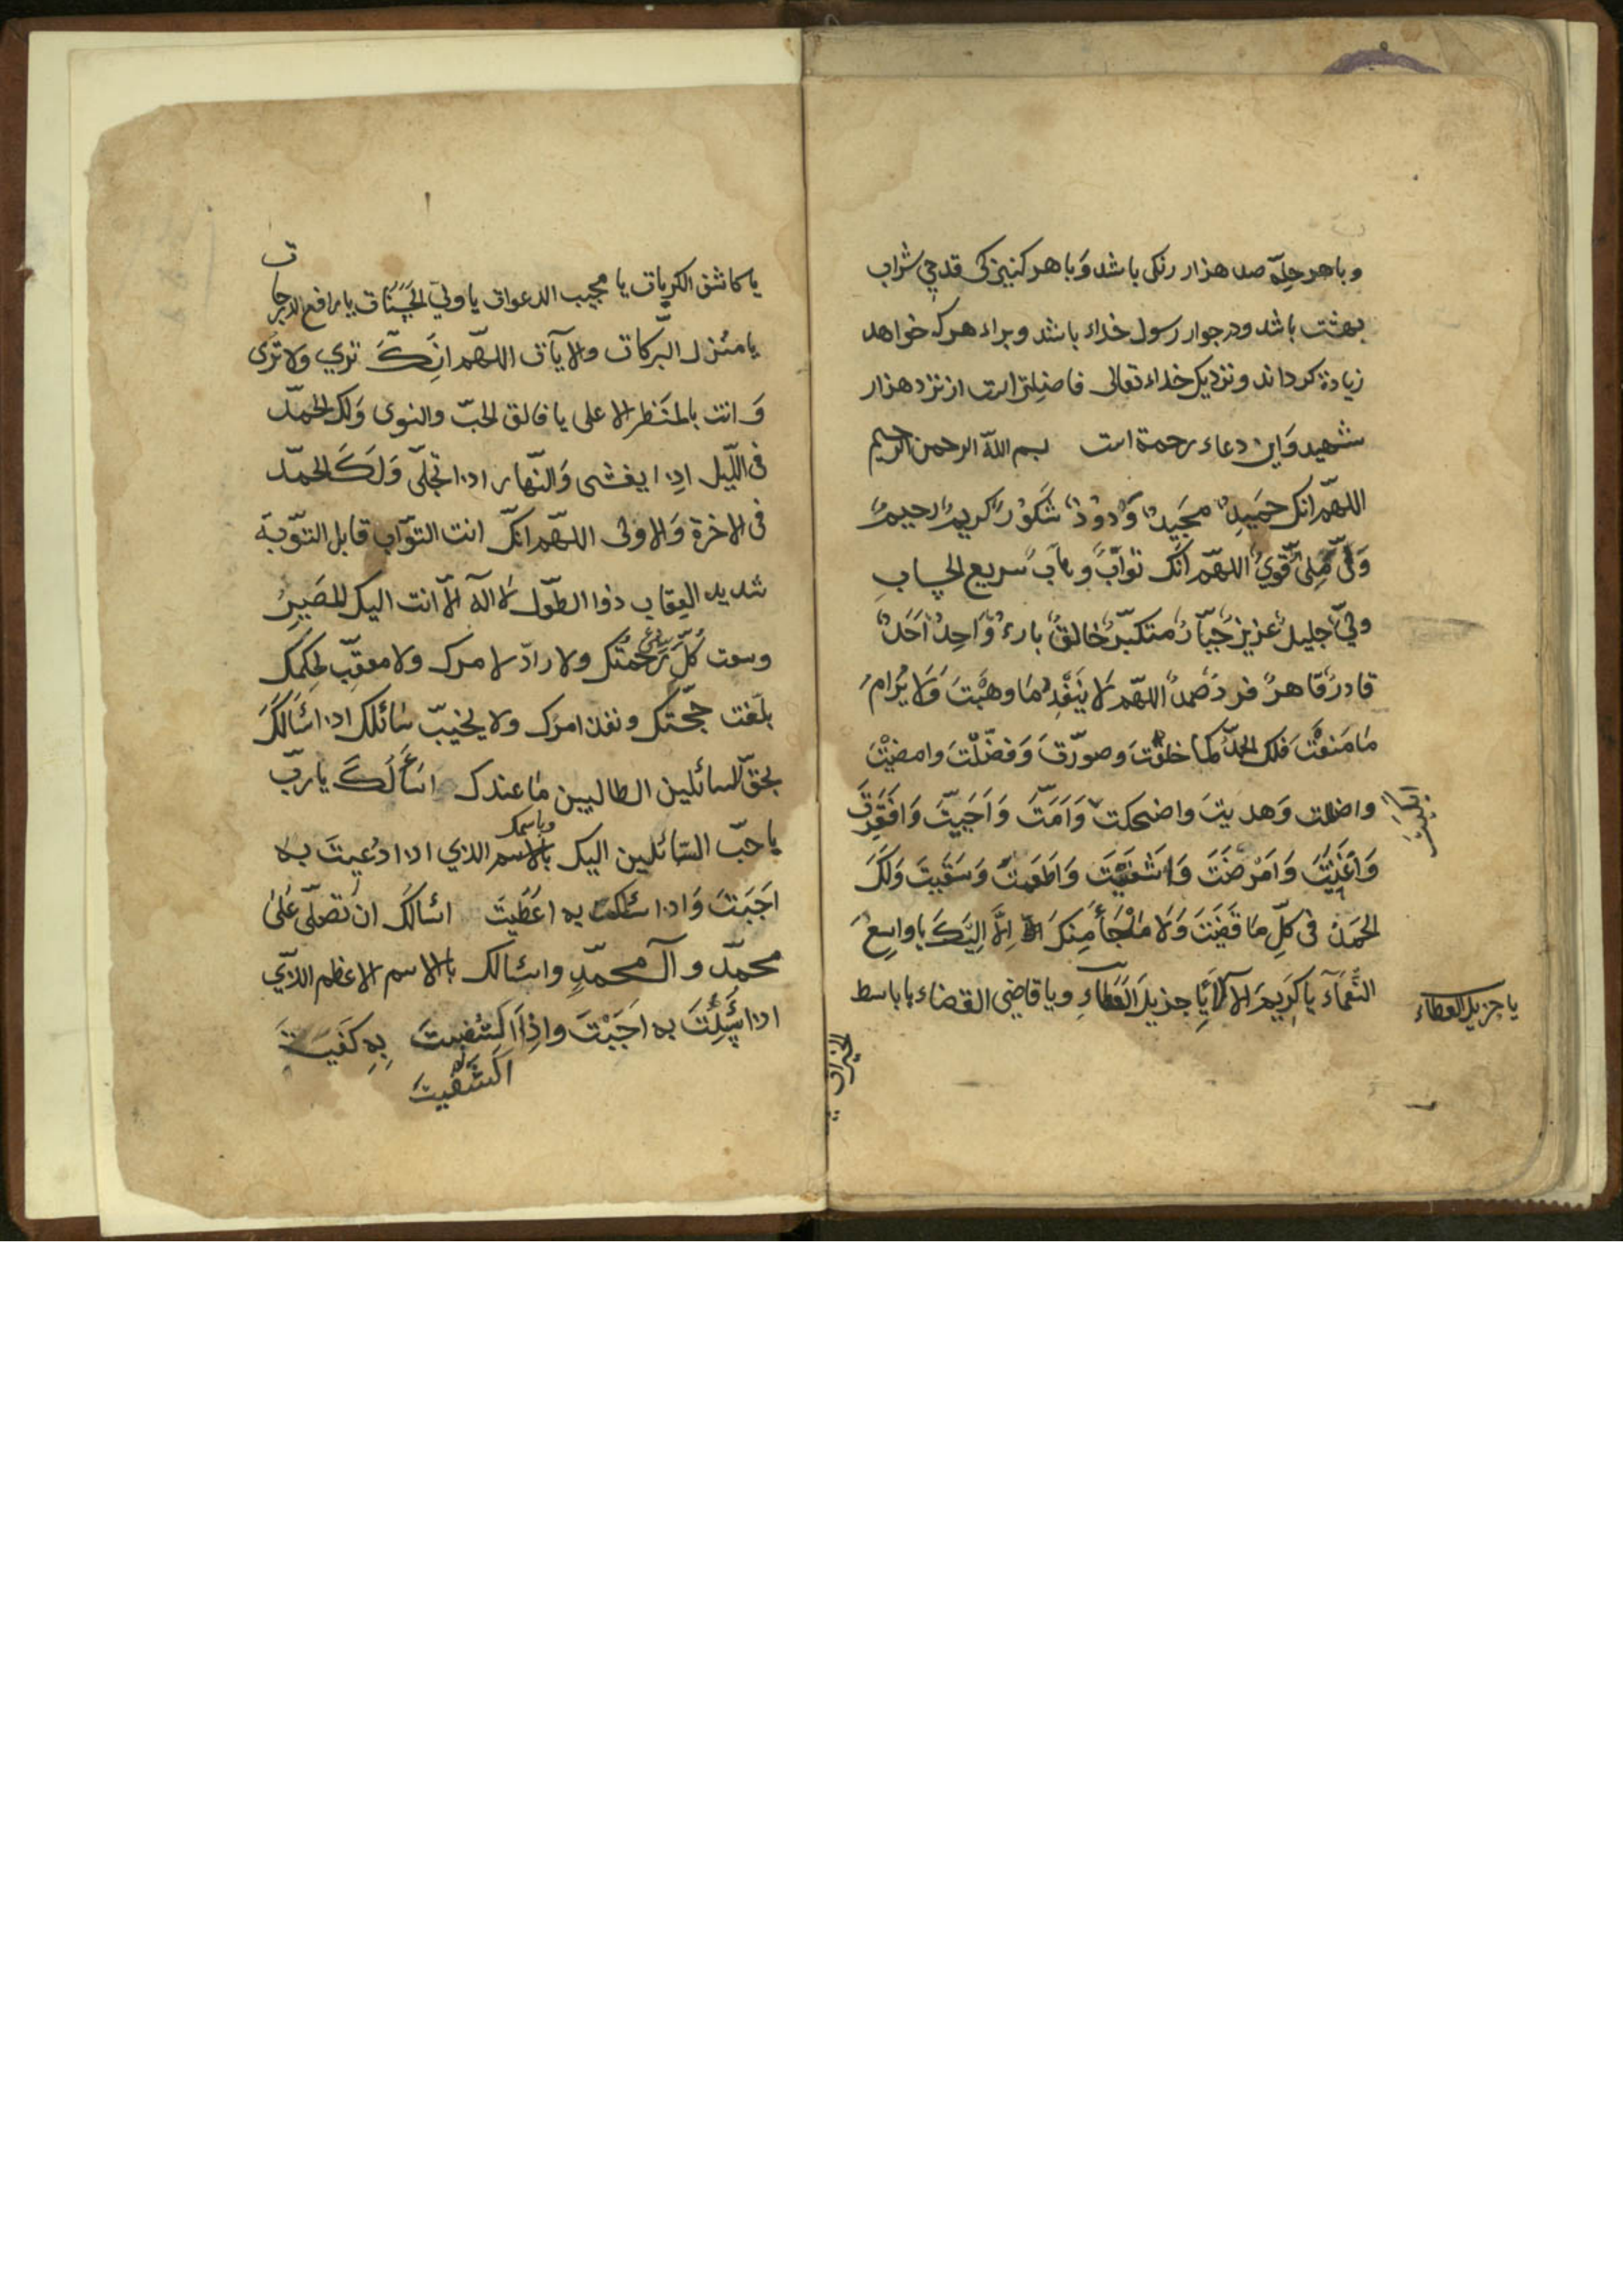 وباهر حلة صد هزار رنکی باشد وَباهر کنیزکی قدحی شراب
بهشت باشد ودر جوار رسول خداء باشد وبراء هرکه خواهد
زیادة کرداند ونزدیک خداء تعالی فاضلتر است از نزد هزار
شهید وَاین دعاء رحمة است بسم اللّه الرحمن الرحیم
اللهمّ انک حَمَیدٌ مجَیدٌ وَدُودٌ شَکَوُرٌ کریمٌ رحیمٌ
وَفیٌّ مَلِیٌّ قَویٌّ اللهمّ انّک توّابٌ وهابٌ سریع الحساب
جلیلٌ عزیزٌ جَبّارٌ متکبّرٌ خالقٌ بارءٌ وَاحِدٌ اَحَدٌ
قادرٌ قاهرٌ فردٌ صَمدٌ اللهمّ لا یَنفَدُ مَا وهَبْتَ وَلا یُرامُ
مَا مَنعْتَ فلک الحمدُ کما خلقْتَ وصوّرتَ وَفضّلْتَ وامضیْتَ
واضللت وَهدیتَ واضحکت وَاَمَتَّ وَاَحیَیتَ وَافقَرتَ
ابکَیتَ
وَاَغنَیتَ وَاَمْرَضتَ وَاشفَیْتَ وَاَطعَمتَ وَسَقَیتَ وَلَکَ
الحَمدُ فی کلِّ مَا قَضَیتَ وَلا مَلْجَأَ مِنکَ اِلّا اِلَیکَ یا واسِعَ
النَّعمَآءِ یا کریمَ الآلآءِ یا جزیلَ العَطاءِ ویا قاضِیَ القضاء یا باسط
یا جزیل العطاء
الخیرات
یا کاشف الکربات یا مجیب الدعوات یا ولیّ الحَسَنات یا رافع الدرجات
یا مُنزل البرَکات والآیات اللهمّ انِّکَ تری ولا تُری
وَانت بالمنَظر الاعلی یا فالق الحَبّ والنوی وَلک الحمدُ
فی اللّیل اذِا یغشی وَالنّهار اذا تجلّی وَلَکَ الحمدُ
فی الاخرة وَالاولی اللهمّ انکّ انت التوّاب قابل التوّبة
شدید العِقاب ذوا الطوّل لا اله الّا انت الیک المصَیرُ
وسعت کُلّ شئ رَحمتُک ولا رادّ لامرک ولا معقِّب لحکمک
بلَغت حجّتک ونفذ امرک ولا یخیبّ سَائلک اذا اسَألکَ
بحقّ السائلین الطالبین مَا عندک اَسأَلُکَ یا ربّ
یا حبّ السّائلین الیک بالاسم الذی اذا دُعیتَ به
وباسمک
اَجَبَتَ وَاذا سئلت به اَعطَیتَ اسألک ان تُصلّی عَلیٰ
محمّد وآلمحمّدٍ واسئالک بالاسم الاعظم الذّی
اذا سُئِلْتَ به اَجَبْتَ واِذا اکتفیتَ بِهِ کَفَیتَ
اکتَفَیتَ